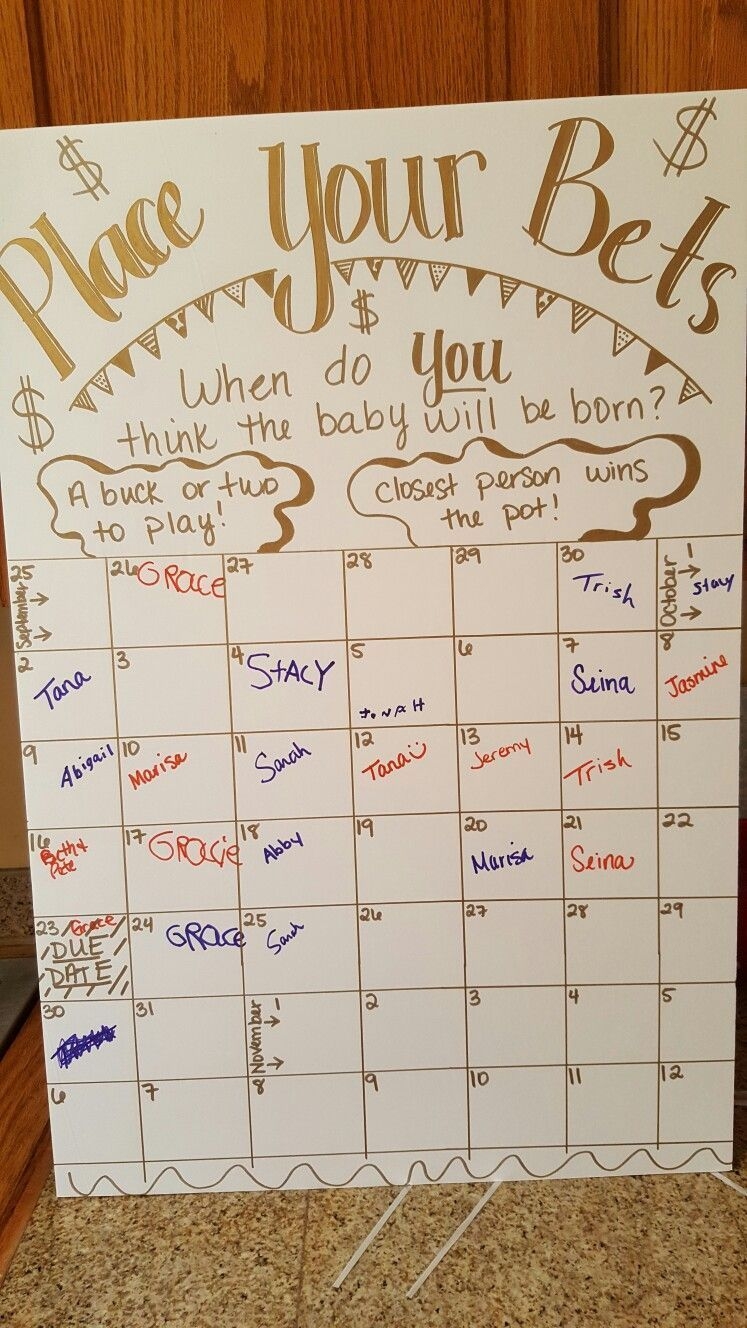 $ $
Place Your Bets
$
When do you
$
think the baby will be born?
A buck or two
to play!
closest person wins
the pot!
25 September
26 GRACE
27
28
29
30 Trish
October 1 Stacy
2 Tana
3
4 STACY
5
6
7 Seina
8 Jasmine
9 Abigail
10 Marisa
11 Sarah
12 Tana
13 Jeremy
14 Trish
15
16
Pete
17 GRACIE
18 Abby
19
20 Marisa
21 Seina
22
23 Grace
DUE
DATE
24 GRACE
25 Sarah
26
27
28
29
30
31
November 1
2
3
4
5
6
7
8
9
10
11
12